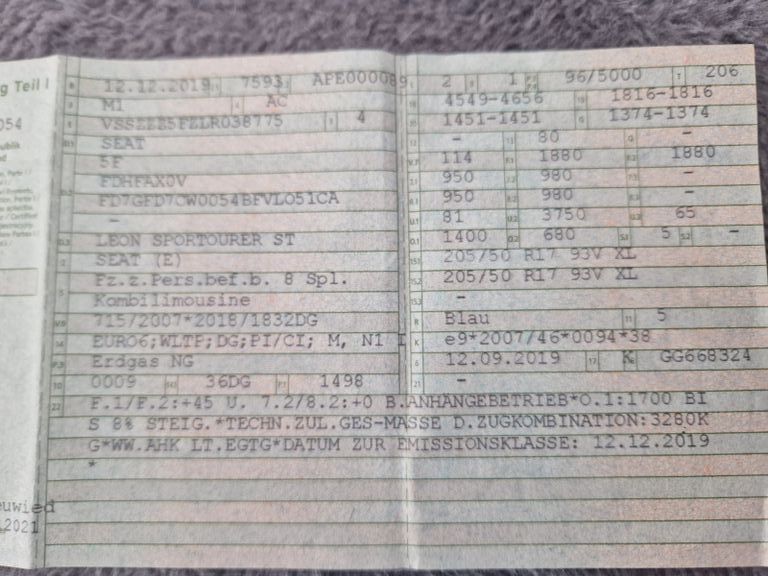 g Teil I
B 12.12.2019 7593 APE000089
M1 AC
VSSZZZ5FZLR038775 4
SEAT
5F
FDHFAX0V
FD7GFD7CW0054BFVLO51CA
-
LEON SPORTOURER ST
SEAT (E)
Fz.z.Pers.bef.b. 8 Spl.
Kombilimousine
715/2007*2018/1832DG
EURO6;WLTP;DG;PI/CI; M, N1 I
Erdgas NG
0009 36DG 1498
2 1 96/5000 206
4549-4656 1816-1816
1451-1451 1374-1374
- 80 -
114 1880 1880
950 980 -
950 980 -
81 3750 65
1400 680 5 -
205/50 R17 93V XL
205/50 R17 93V XL
-
Blau 5
K e9*2007/46*0094*38
6 12.09.2019 17 K GG668324
-
22 F.1/F.2:+45 U. 7.2/8.2:+0 B.ANHÄNGEBETRIEB*O.1:1700 BI
S 8% STEIG.*TECHN.ZUL.GES-MASSE D.ZUGKOMBINATION:3280K
G*WW.AHK LT.EGTG*DATUM ZUR EMISSIONSKLASSE: 12.12.2019
*
054
euwied
.2021